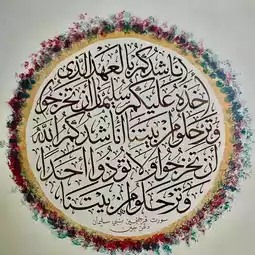 أناشدكم بالعهد الذي
أخذه عليكم سليمان أن تخرجوا
وترحلوا من بيتنا أناشدكم الله
أن تخرجوا ولا تؤذوا أحدا
وترحلوا من بيتنا
سورت